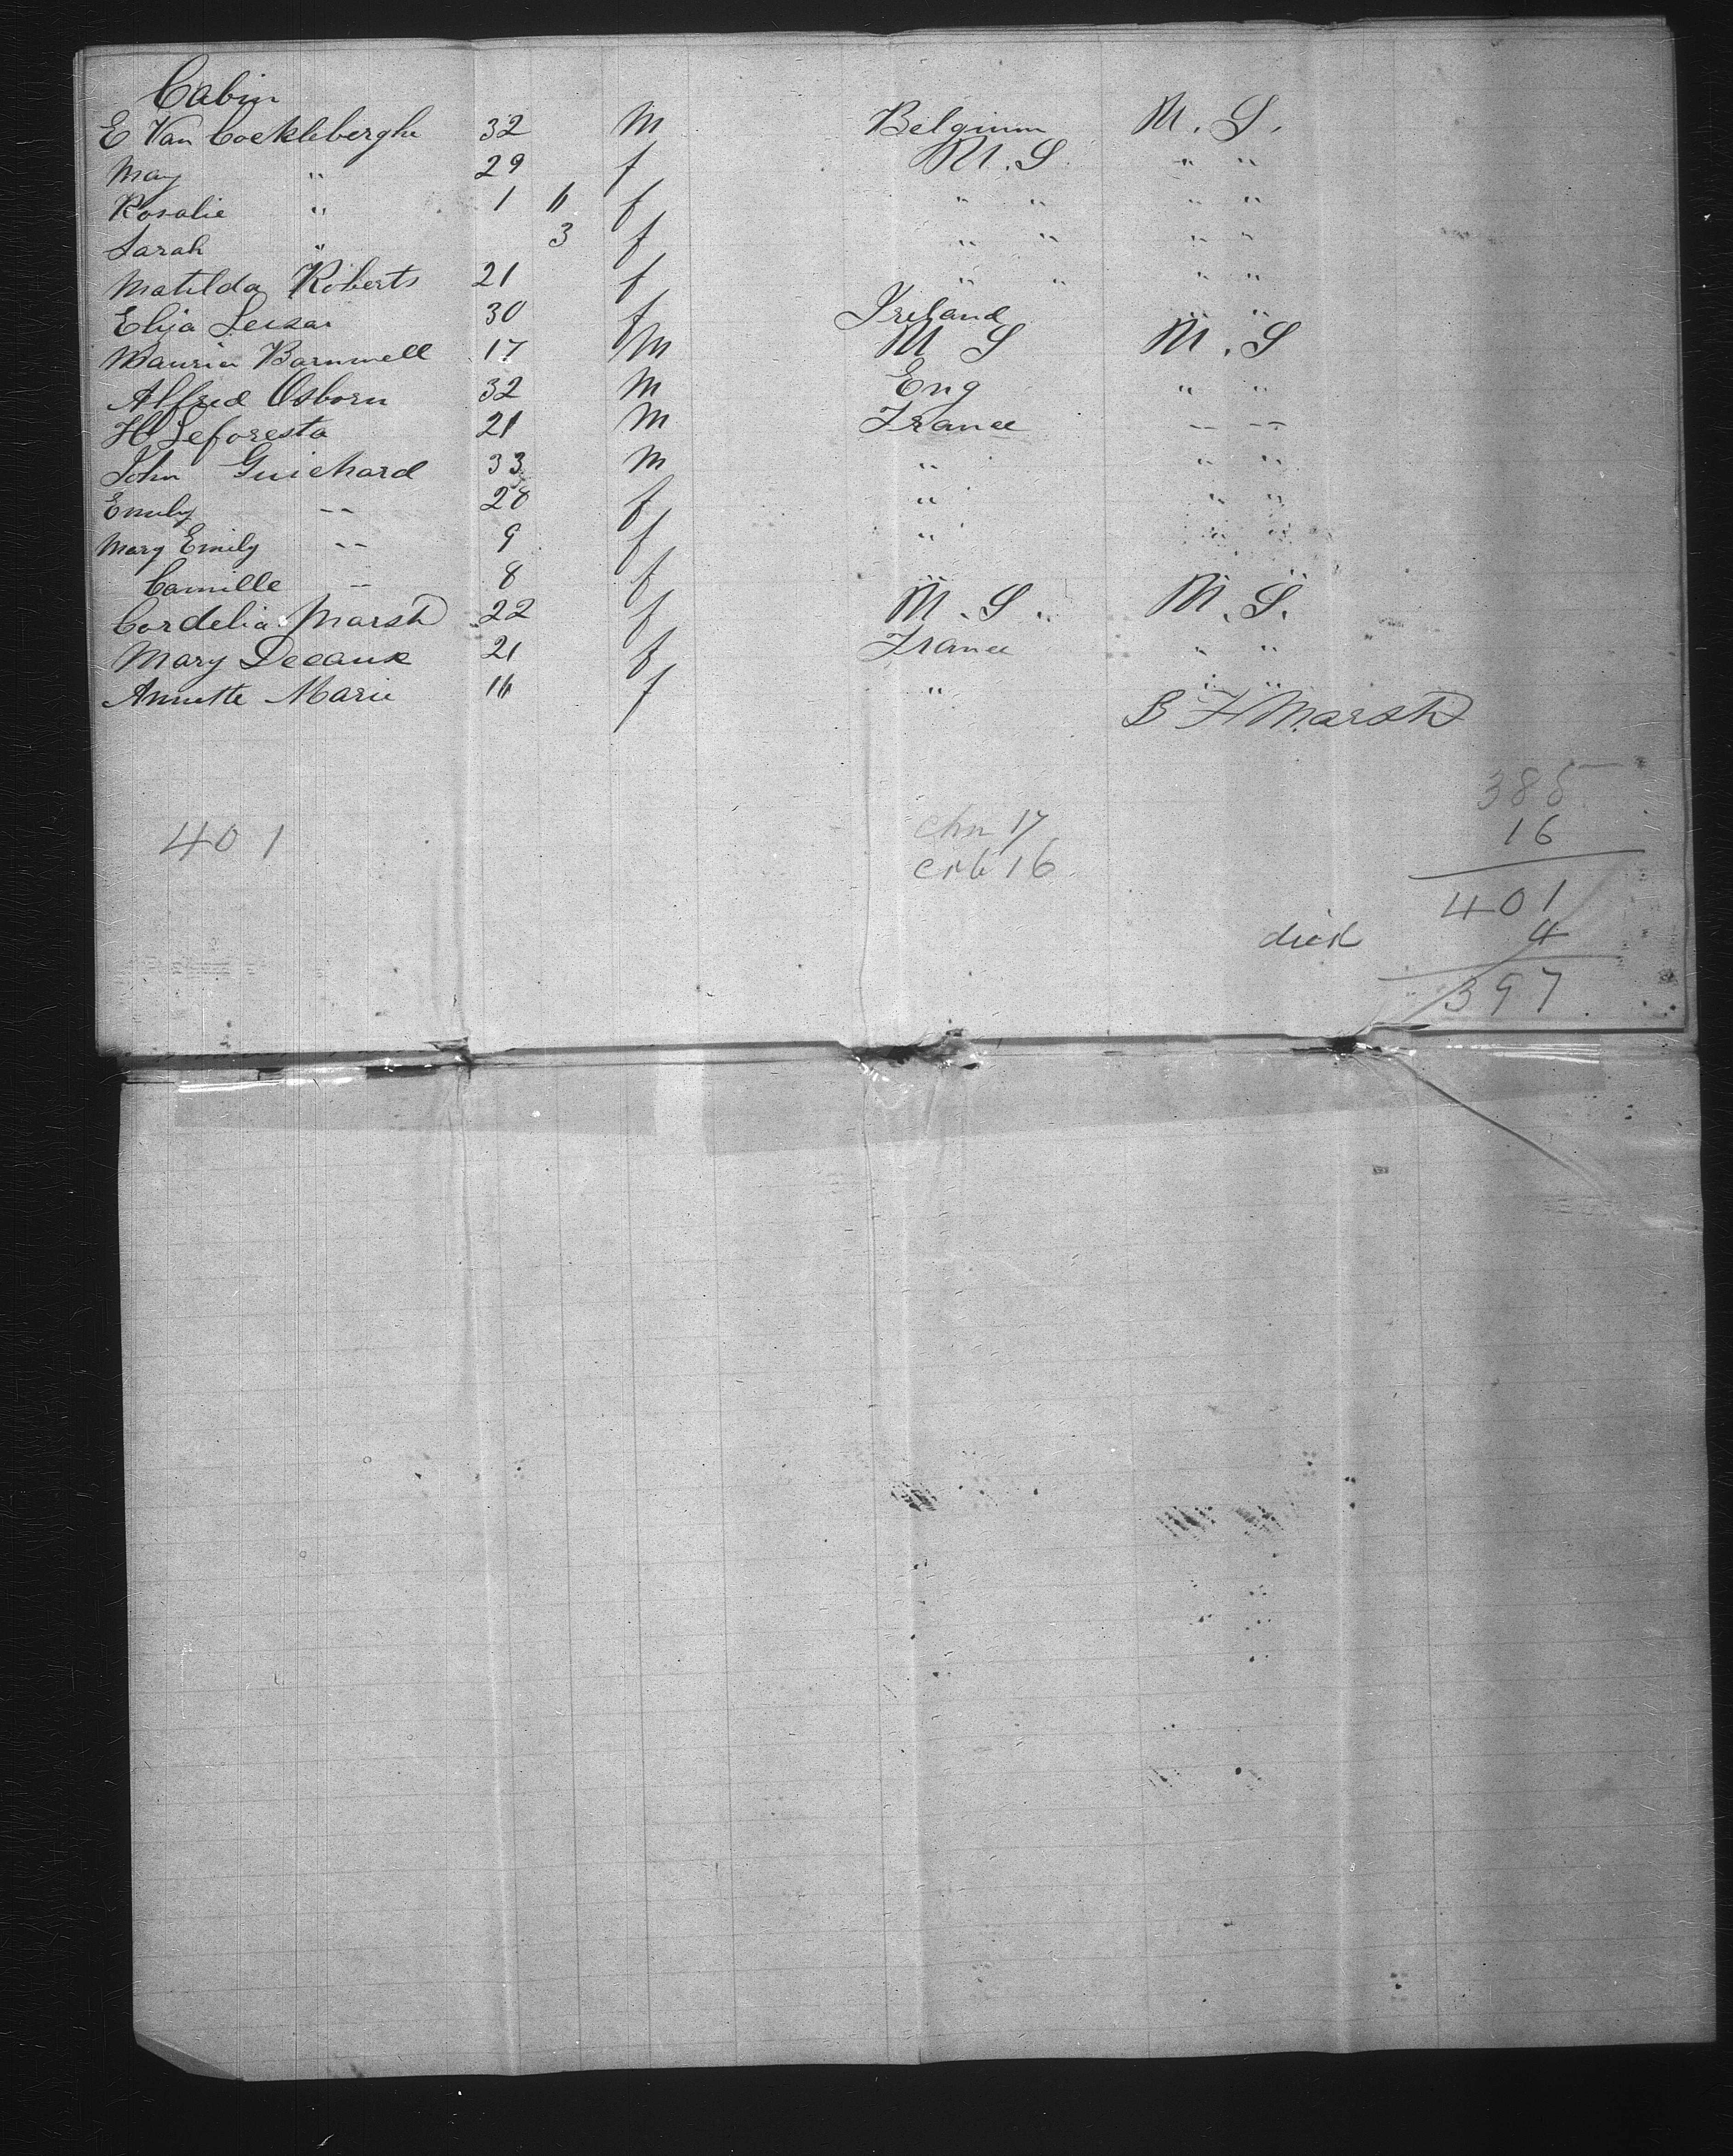 Cabin
E Van Cockleberghe 32 M Belgium U. S.
May " 29 f U. S. " "
Rosalie " 1 6 f " " " "
Sarah " 3 f " " " "
Matilda Roberts 21 f " " " "
Elija 30 f Ireland " "
Barnwell 17 M U S U. S
Alfred Osborn 32 M Eng " "
H Leforesta 21 M France -- --
John Guichard 33 M " " "
Emily -- 28 f " " "
Mary Emily -- 9 f " " "
Camille -- 8 f " " "
Cordelia Marsh 22 f U. S. U. S.
Mary Decaux 21 f France " "
Annette Marie 16 f " " "
B F Marsh
385
16
401
401
chn 17
cob 16
died 4
397